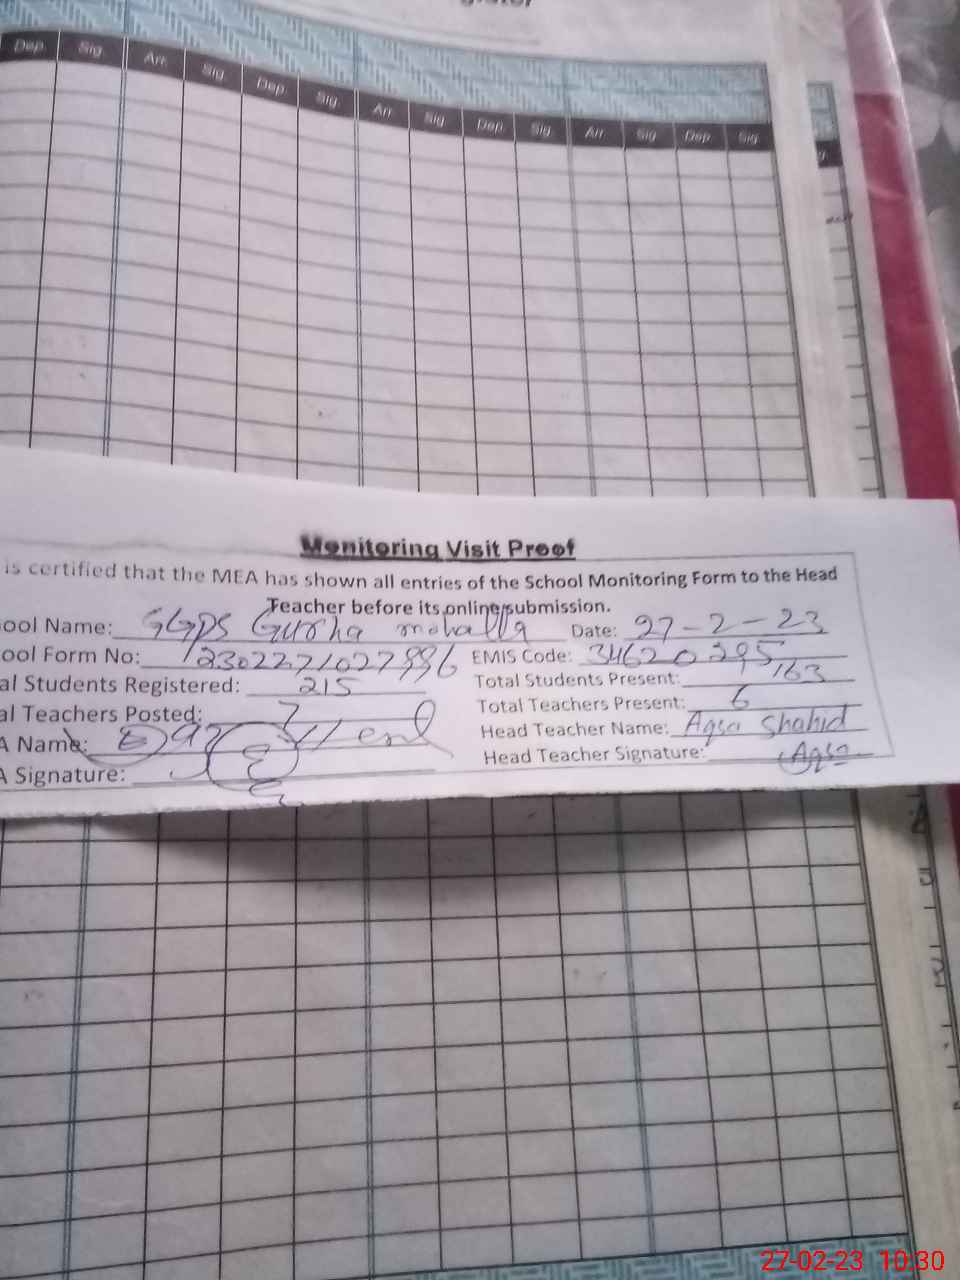 Dep. Sig. Arr. Sig. Dep. Sig. Arr. Sig. Dep. Sig. Arr. Sig. Dep. Sig.
Monitoring Visit Proof
is certified that the MEA has shown all entries of the School Monitoring Form to the Head
Teacher before its online submission.
ool Name: GGPS Gursha mohalla Date: 27-2-23
ool Form No: EMIS Code: 34620295
al Students Registered: 215 Total Students Present: 163
al Teachers Posted: 7 Total Teachers Present: 6
A Name: Head Teacher Name: Aqsa Shahid
A Signature: Head Teacher Signature: Aqsa
27-02-23 10:30